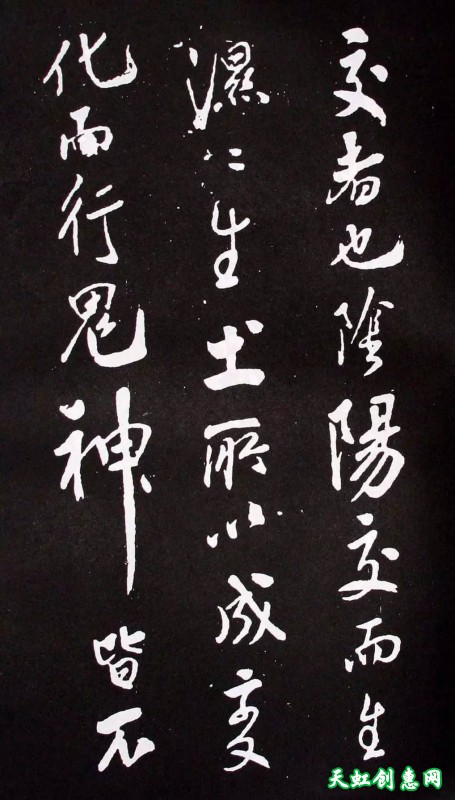 交者也陰陽交而生
濕〻生土所以成变
化而行鬼神皆不
天虹创意网